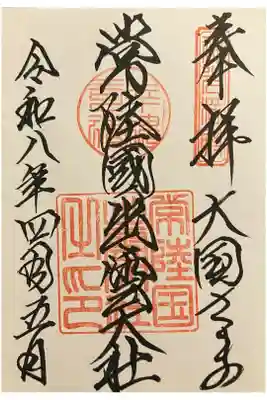 奉拝 大国さま
常陸國出雲大社
令和八年四月五日
常陸国
之印